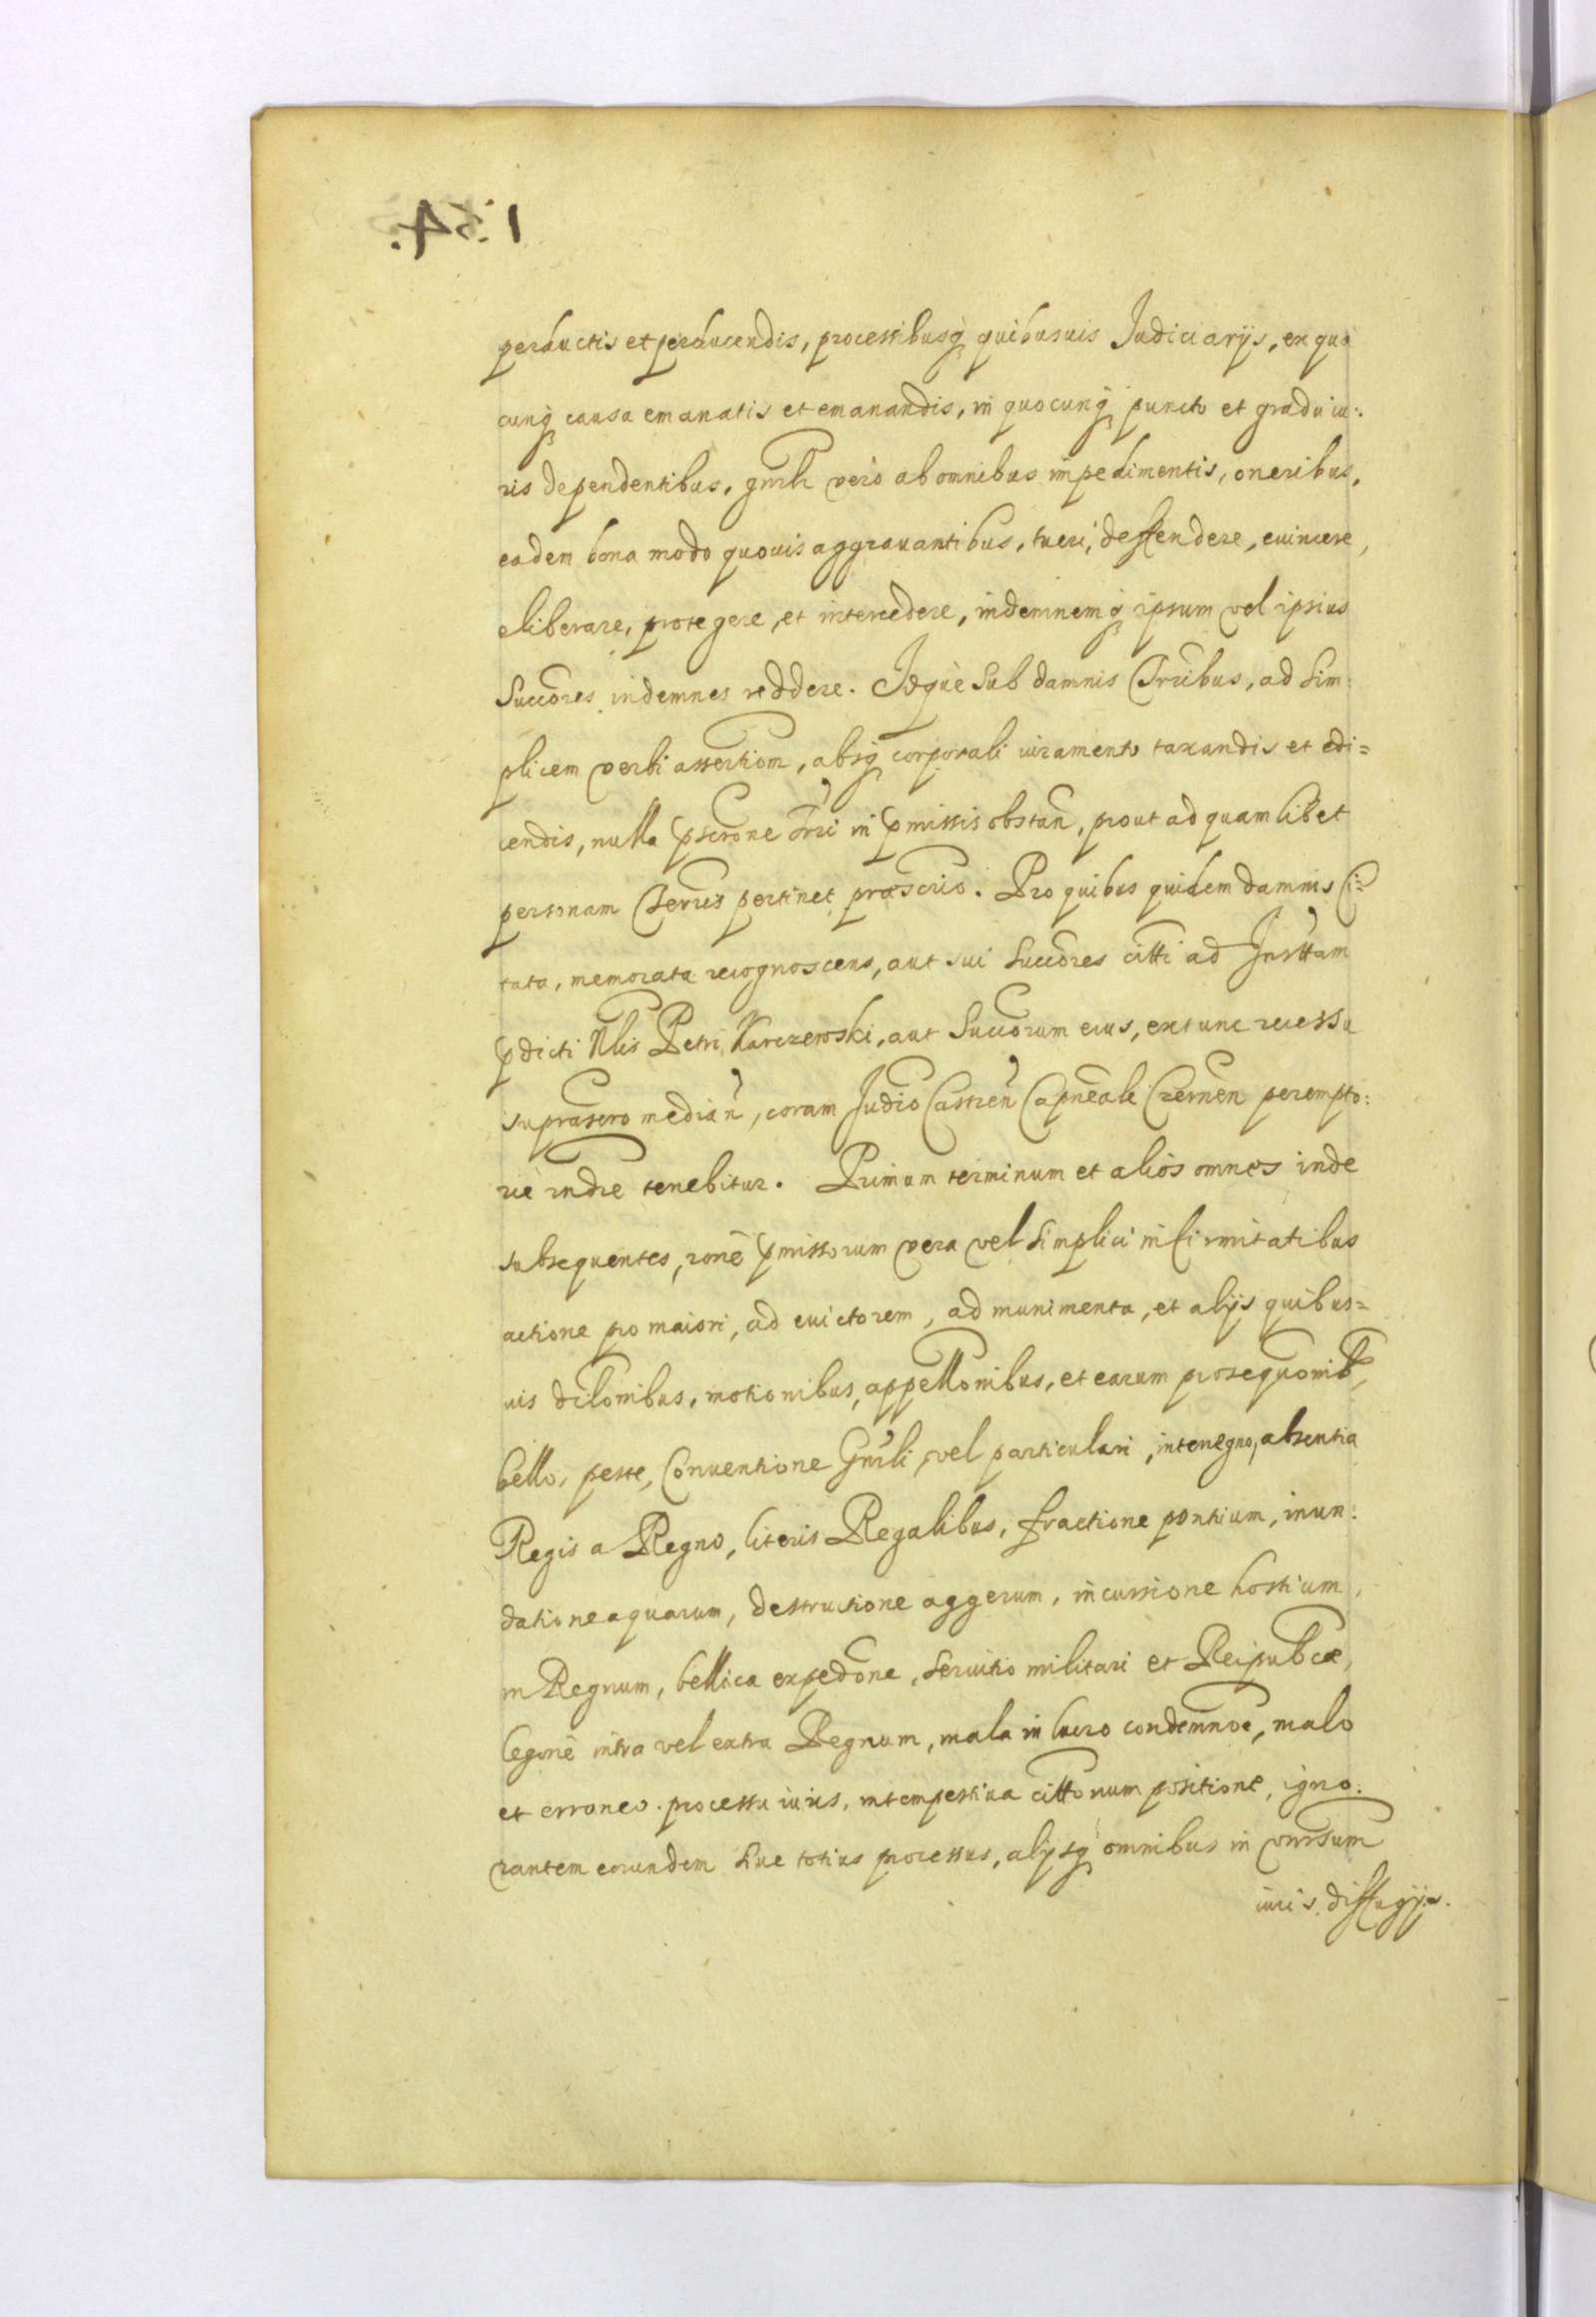 perductis et perducendis, processibusq quibusuis Judiciarijs, ex qua
cunq causa emanatis et emanandis, in quocunq puncto et gradu iu:
ris dependentibus, gnrlr vero ab omnibus impedimentis, oneribus,
eadem bona modo quouis aggrauantibus, tueri, deffendere, euincere,
eliberare, protegere, et intercedere, indemnemq ipsum vel ipsius
Succōres indemnes reddere. Idque Sub damnis trribus, ad Sim:
plicem verbi assertiom, absq corporali iuramento taxandis et edi=
cendis, nulla pscrōne trri in pmissis obstan, prout ad quamlibet
personam pertinet prascrio. Pro quibus quidem damnis Ci=
tata, memorata recognoscens, aut sui Succōres citti ad Insttam
pdicti Nlis Petri Karczewski, aut Succorum eius, extunc recessu
suprascro median, coram Judio Castren Capneale Czernen perempto:
rie rndre tenebitur. Primum terminum et alios omnes inde
subsequentes, rōne pmissorum vera vel Simplici infirmitatibus
actione pro maiori, ad euictorem, ad munimenta, et alijs quibus=
uis dilōnibus, motionibus, appellōnibus, et earum prosequōnib,
bello, peste, Conuentione Gnrli, vel particulari, interregno, absentia
Regis a Regno, literis Regalibus, fractione pontium, inun:
datione aquarum, destructione aggerum, incursione hostium,
in Regnum, bellica expedōne, Seruitio militari et Reipubcæ,
legōne intra vel extra Regnum, mala in lucro condemnōe, malo
et erroneo processu iuris, intempestiua cittōnum positione, igno:
rantem eorundem Siue totius processus, alijsq omnibus in vnrsum
iuris diffugijs.